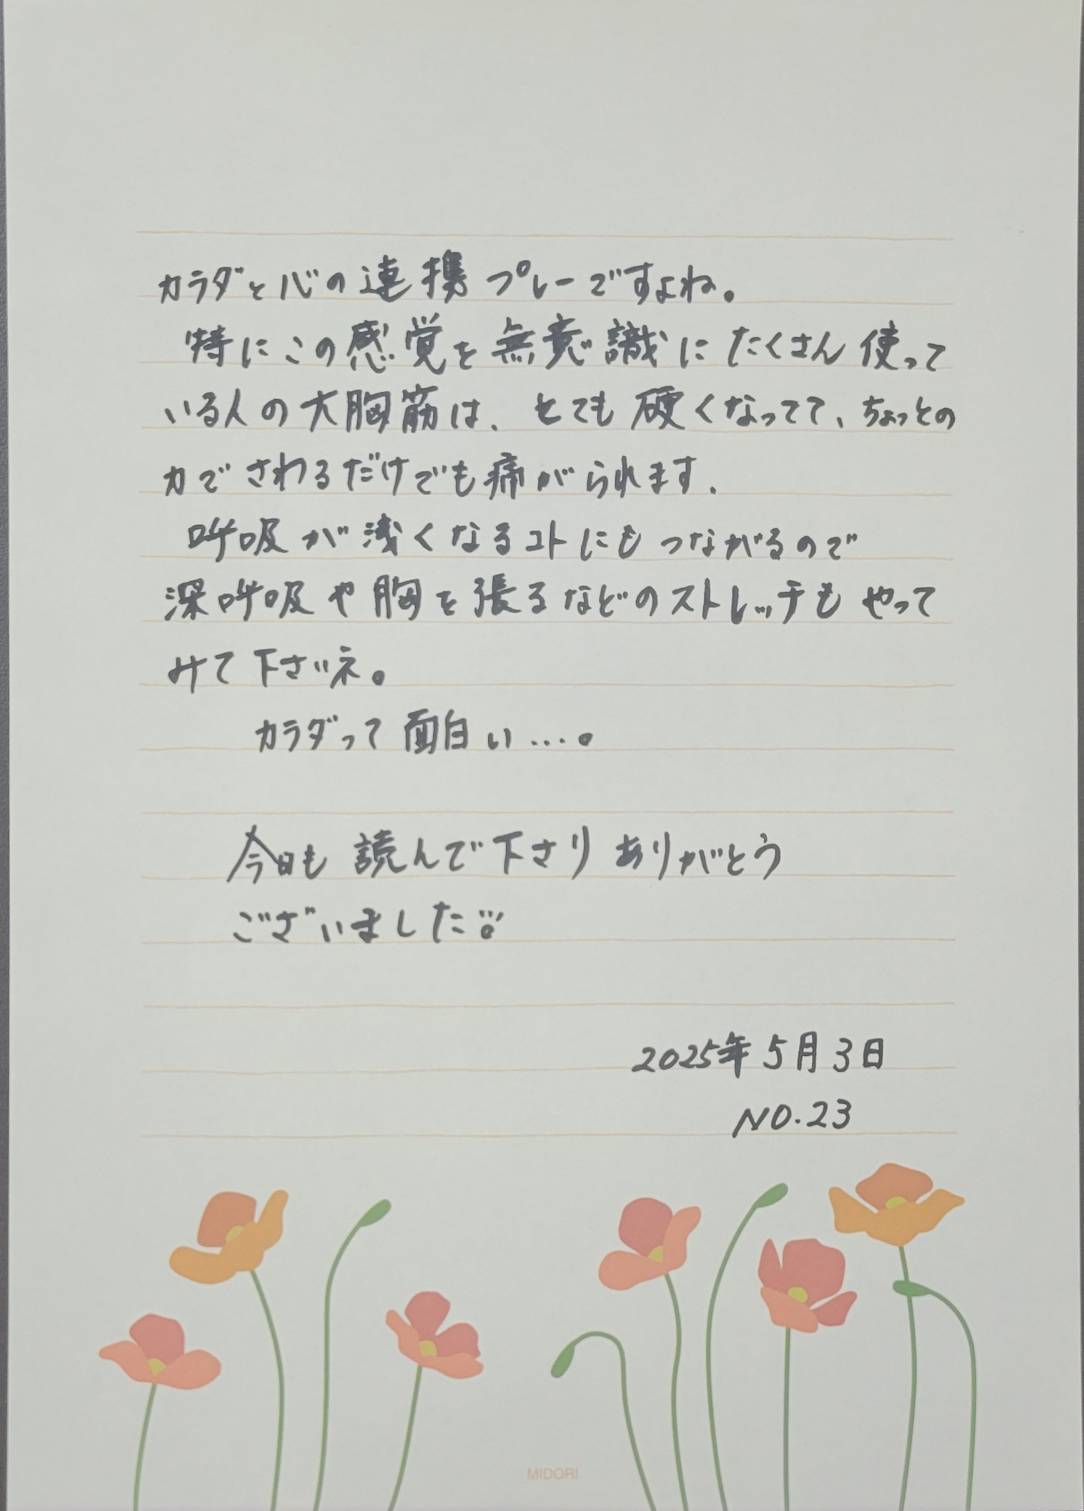 カラダと心の連携プレーですよね。
特にこの感覚を無意識にたくさん使って
いる人の大胸筋は、とても硬くなってて、ちょっとの
力でさわるだけでも痛がられます。
呼吸が浅くなるコトにもつながるので
深呼吸や胸を張るなどのストレッチもやって
みて下さいネ。
カラダって面白い…。
今日も読んで下さりありがとう
ございました
2025年5月3日
NO.23
MIDORI